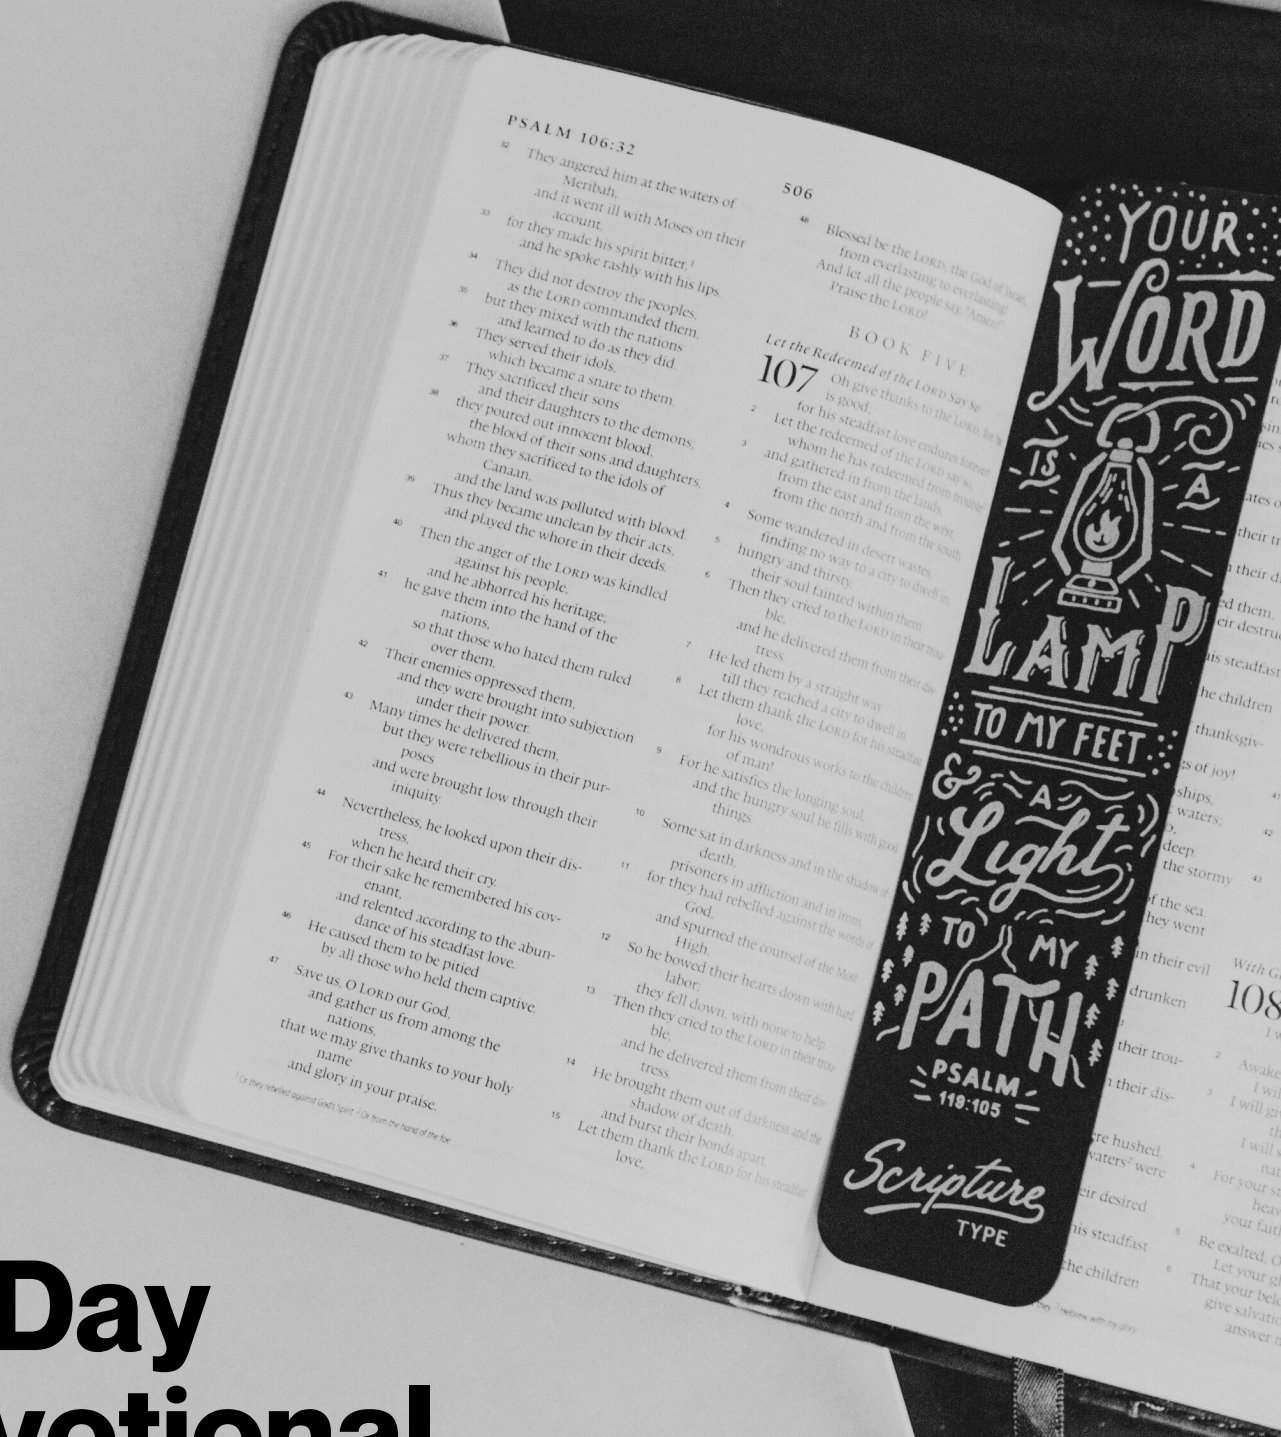 PSALM 106:32
32 They angered him at the waters of
Meribah,
and it went ill with Moses on their
account,
33 for they made his spirit bitter,¹
and he spoke rashly with his lips.
34 They did not destroy the peoples,
as the LORD commanded them,
35 but they mixed with the nations
and learned to do as they did.
36 They served their idols,
which became a snare to them.
37 They sacrificed their sons
and their daughters to the demons;
38 they poured out innocent blood,
the blood of their sons and daughters,
whom they sacrificed to the idols of
Canaan,
and the land was polluted with blood.
39 Thus they became unclean by their acts,
and played the whore in their deeds.
40 Then the anger of the LORD was kindled
against his people,
and he abhorred his heritage;
41 he gave them into the hand of the
nations,
so that those who hated them ruled
over them.
42 Their enemies oppressed them,
and they were brought into subjection
under their power.
43 Many times he delivered them,
but they were rebellious in their pur-
poses
and were brought low through their
iniquity.
44 Nevertheless, he looked upon their dis-
tress,
when he heard their cry.
45 For their sake he remembered his cov-
enant,
and relented according to the abun-
dance of his steadfast love.
46 He caused them to be pitied
by all those who held them captive.
47 Save us, O LORD our God,
and gather us from among the
nations,
that we may give thanks to your holy
name
and glory in your praise.
¹ Or they rebelled against God's Spirit ² Or from the hand of the foe
506
48 Blessed be the LORD, the God of Israel,
from everlasting to everlasting!
And let all the people say, "Amen!"
Praise the LORD!
BOOK FIVE
Let the Redeemed of the LORD Say So
107 Oh give thanks to the LORD, for he
is good,
for his steadfast love endures forever!
2 Let the redeemed of the LORD say so,
whom he has redeemed from trouble
3 and gathered in from the lands,
from the east and from the west,
from the north and from the south.
4 Some wandered in desert wastes,
finding no way to a city to dwell in;
5 hungry and thirsty,
their soul fainted within them.
6 Then they cried to the LORD in their trou-
ble,
and he delivered them from their dis-
tress.
7 He led them by a straight way
till they reached a city to dwell in.
8 Let them thank the LORD for his steadfast
love,
for his wondrous works to the children
of man!
9 For he satisfies the longing soul,
and the hungry soul he fills with good
things.
10 Some sat in darkness and in the shadow of
death,
prisoners in affliction and in irons,
11 for they had rebelled against the words of
God,
and spurned the counsel of the Most
High.
12 So he bowed their hearts down with hard
labor;
they fell down, with none to help.
13 Then they cried to the LORD in their trou-
ble,
and he delivered them from their dis-
tress.
14 He brought them out of darkness and the
shadow of death,
and burst their bonds apart.
15 Let them thank the LORD for his steadfast
love,
YOUR
WORD
IS A
LAMP
TO MY FEET
& A
Light
TO MY
PATH
PSALM
119:105
Scripture
TYPE
their
their
them,
steadfast
the children
thanksgiv-
of joy!
ships,
waters;
deep.
the stormy
of the sea.
they went
in their evil
drunken
their trou-
their dis-
hushed.
waters² were
their desired
his steadfast
the children
41
42
43
With G
108
2 Awake
I wil
3 I will gi
I will s
4 For your st
heav
your faith
5 Be exalted, O
Let your gl
6 That your belo
give salvatio
answer m
Hebrew with my glory
Day
votional